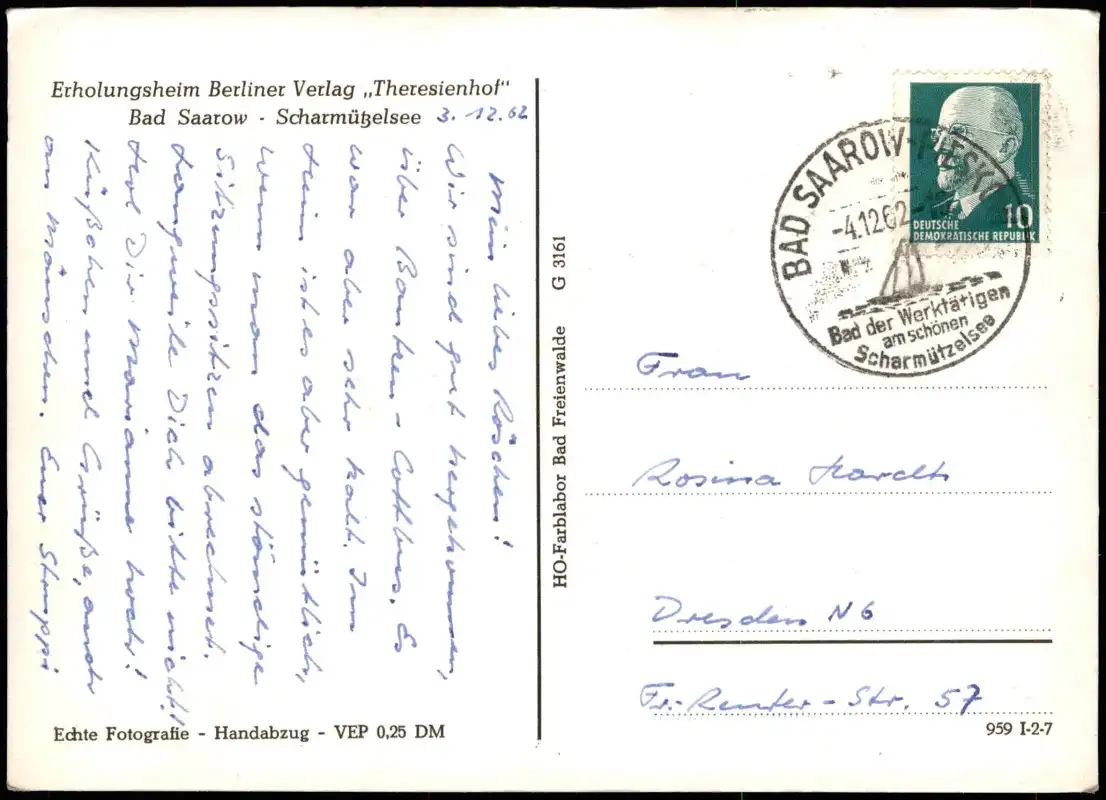 Erholungsheim Berliner Verlag „Theresienhof"
Bad Saarow - Scharmützelsee 3.12.62
Mein liebes Röschen!
Wir sind gut hergekommen,
über Bautzen - Cottbus. Es
war aber sehr kalt. Im
Heim ist es aber gemütlich,
wenn man das ständige
Sitzungssitzen abrechnet.
Langweile Dich bitte nicht!
Hol Dir Mariane hoch!
Küßchen und Grüße, auch
an Mäuschen. Euer Struppi
Echte Fotografie - Handabzug - VEP 0,25 DM
HO-Farblabor Bad Freienwalde G 3161
BAD SAAROW-PIESKOW
-4.12.62
Bad der Werktätigen
am schönen
Scharmützelsee
10
DEUTSCHE
DEMOKRATISCHE REPUBLIK
Frau
Rosina Hardt
Dresden N6
Fr.-Reuter-Str. 57
959 I-2-7